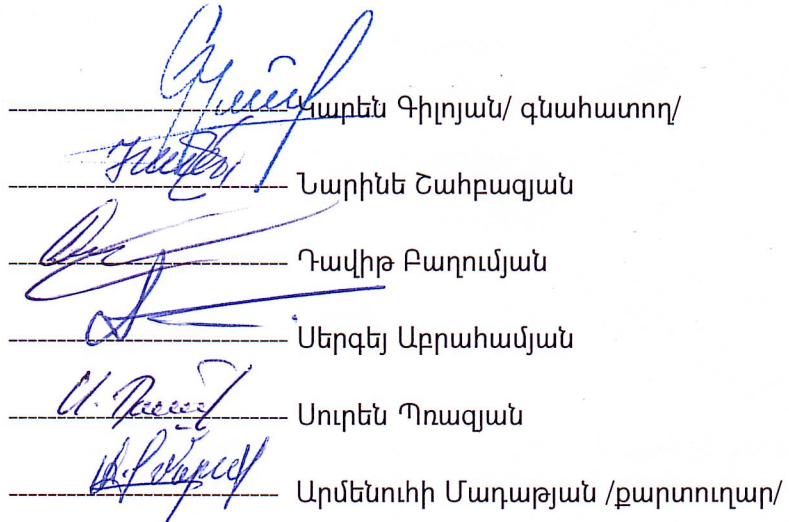 Կարեն Գիլոյան/ գնահատող/
Նարինե Շահբազյան
Դավիթ Բաղումյան
Սերգեյ Աբրահամյան
Սուրեն Պռազյան
Արմենուհի Մադաթյան /քարտուղար/